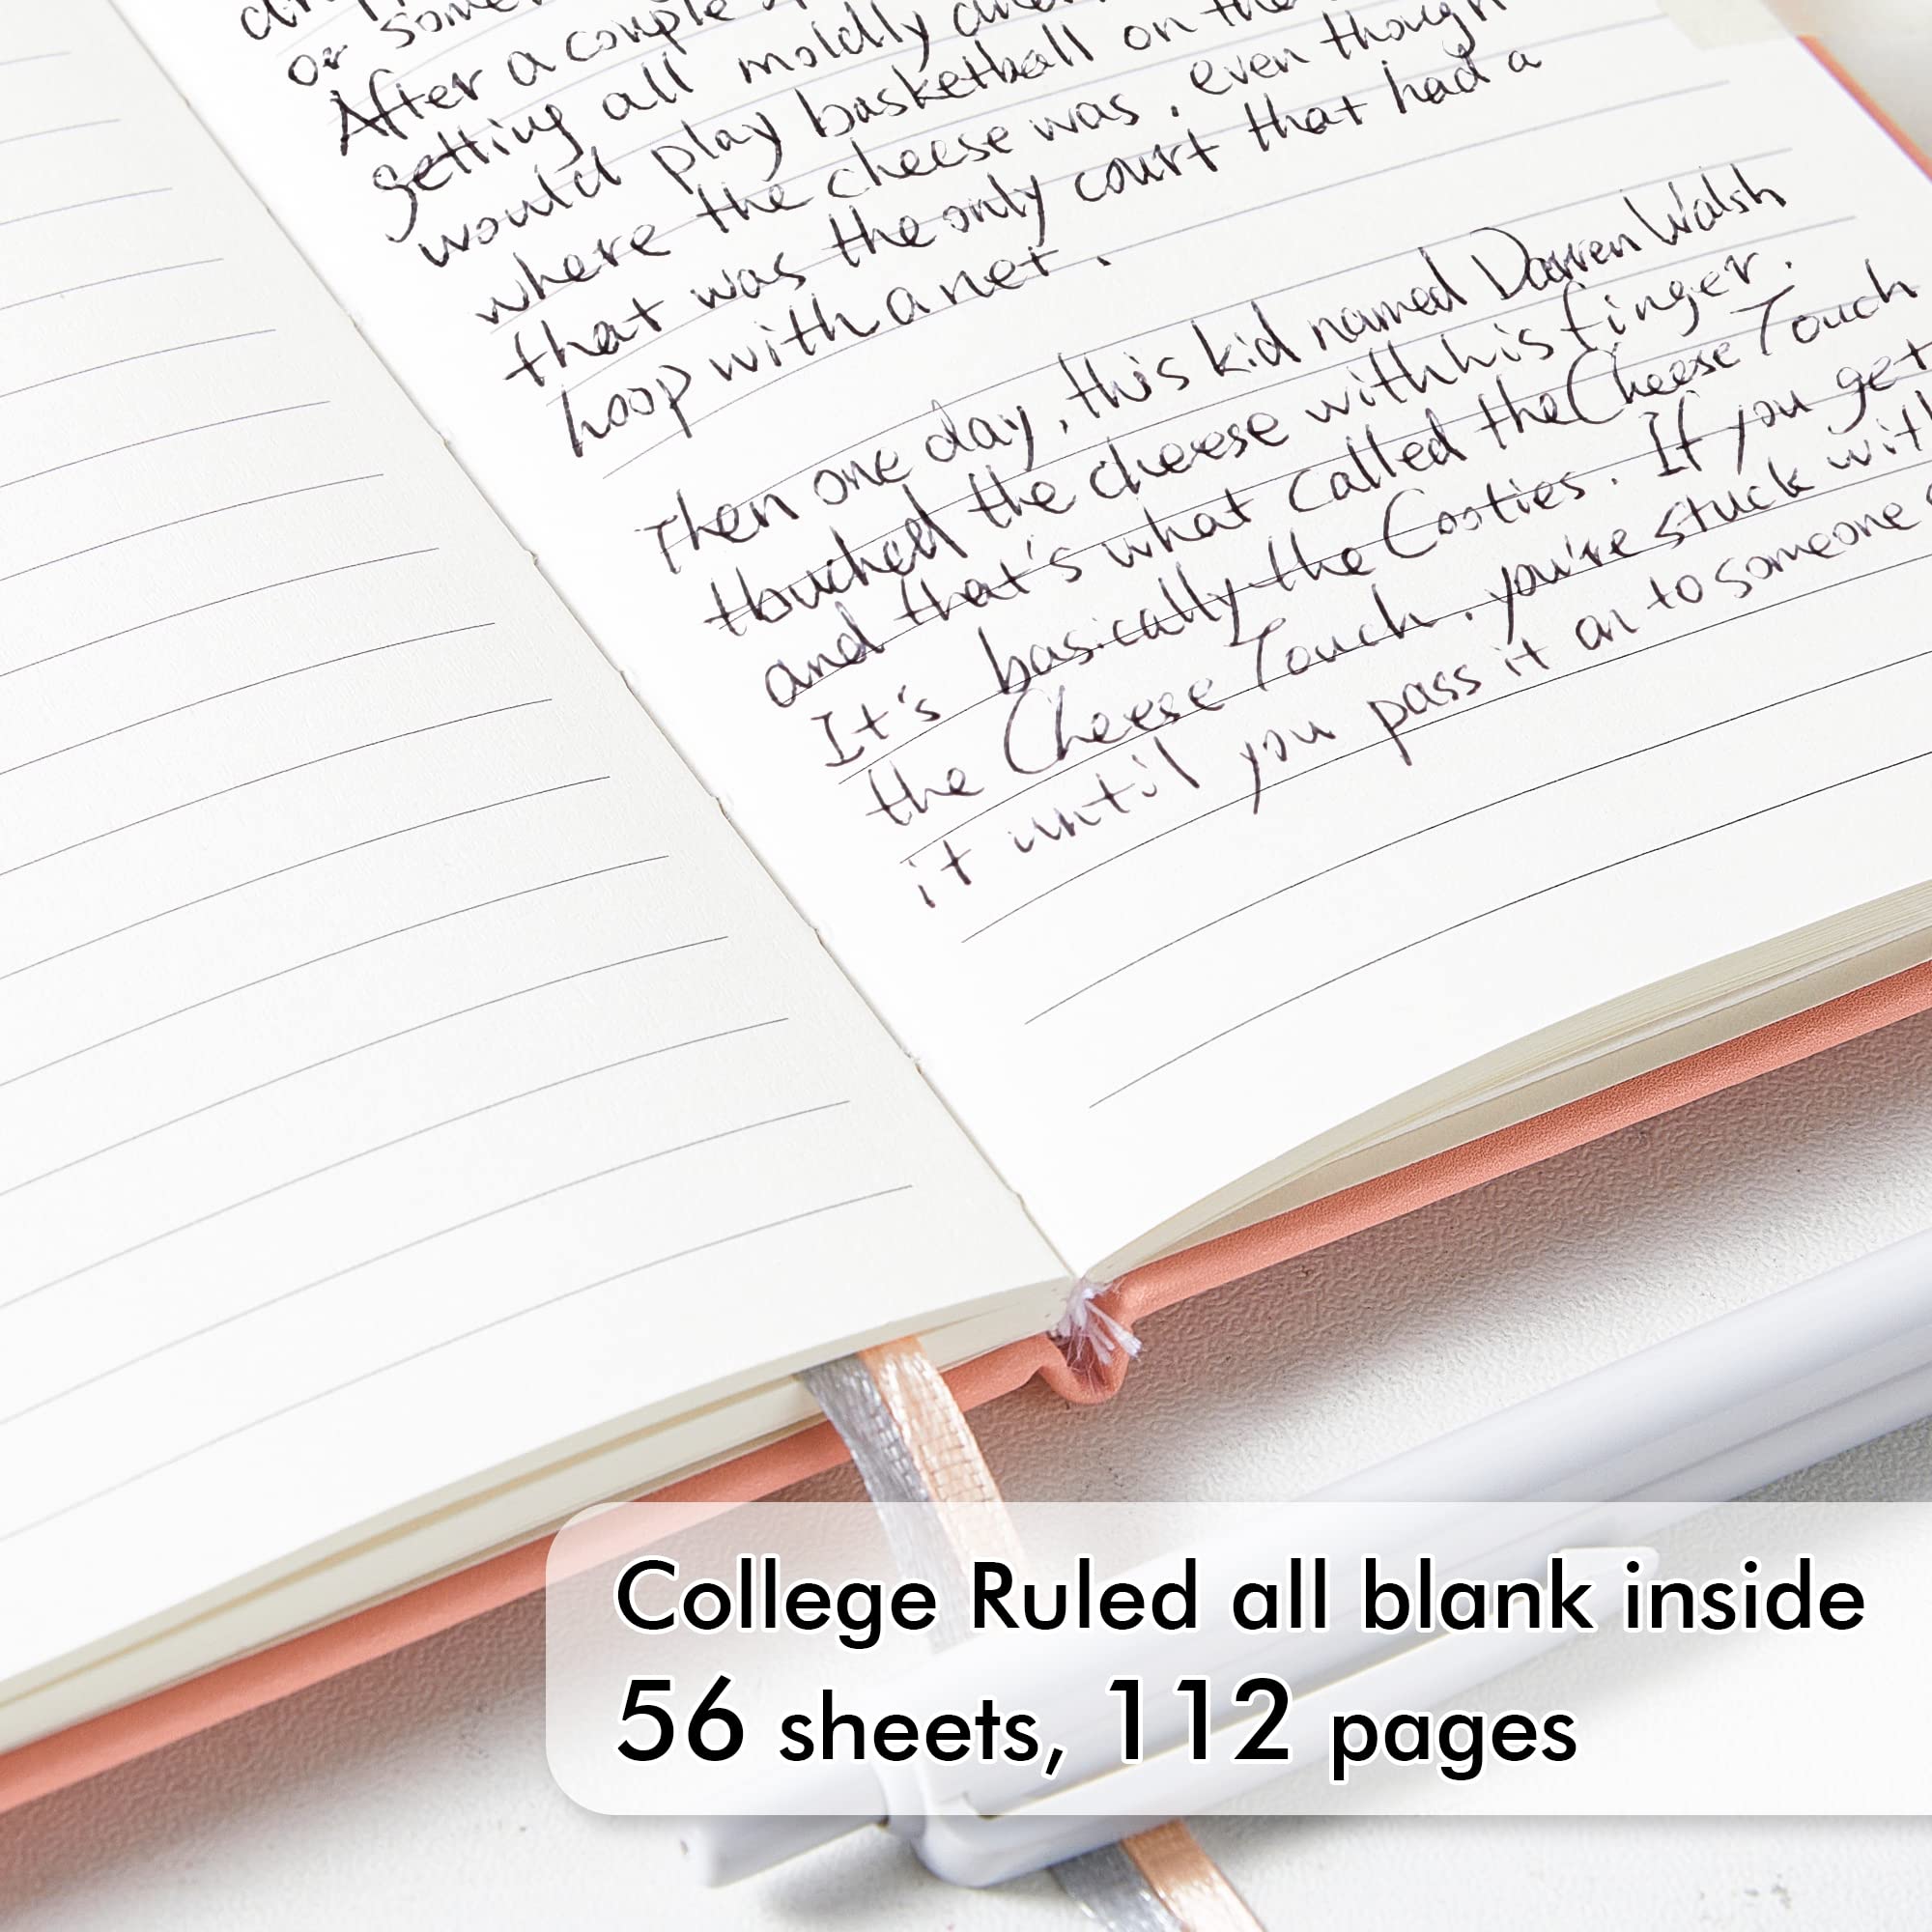 or some
After a couple
getting all moldly and
would play basketball on the
where the cheese was. even though
that was the only court that had a
hoop with a net.
Then one day, this kid named Darren Walsh
touched the cheese with his finger.
and that's what called the Cheese Touch
It's basically the Cooties. If you get
the Cheese Touch, you're stuck with
it until you pass it on to someone
College Ruled all blank inside
56 sheets, 112 pages